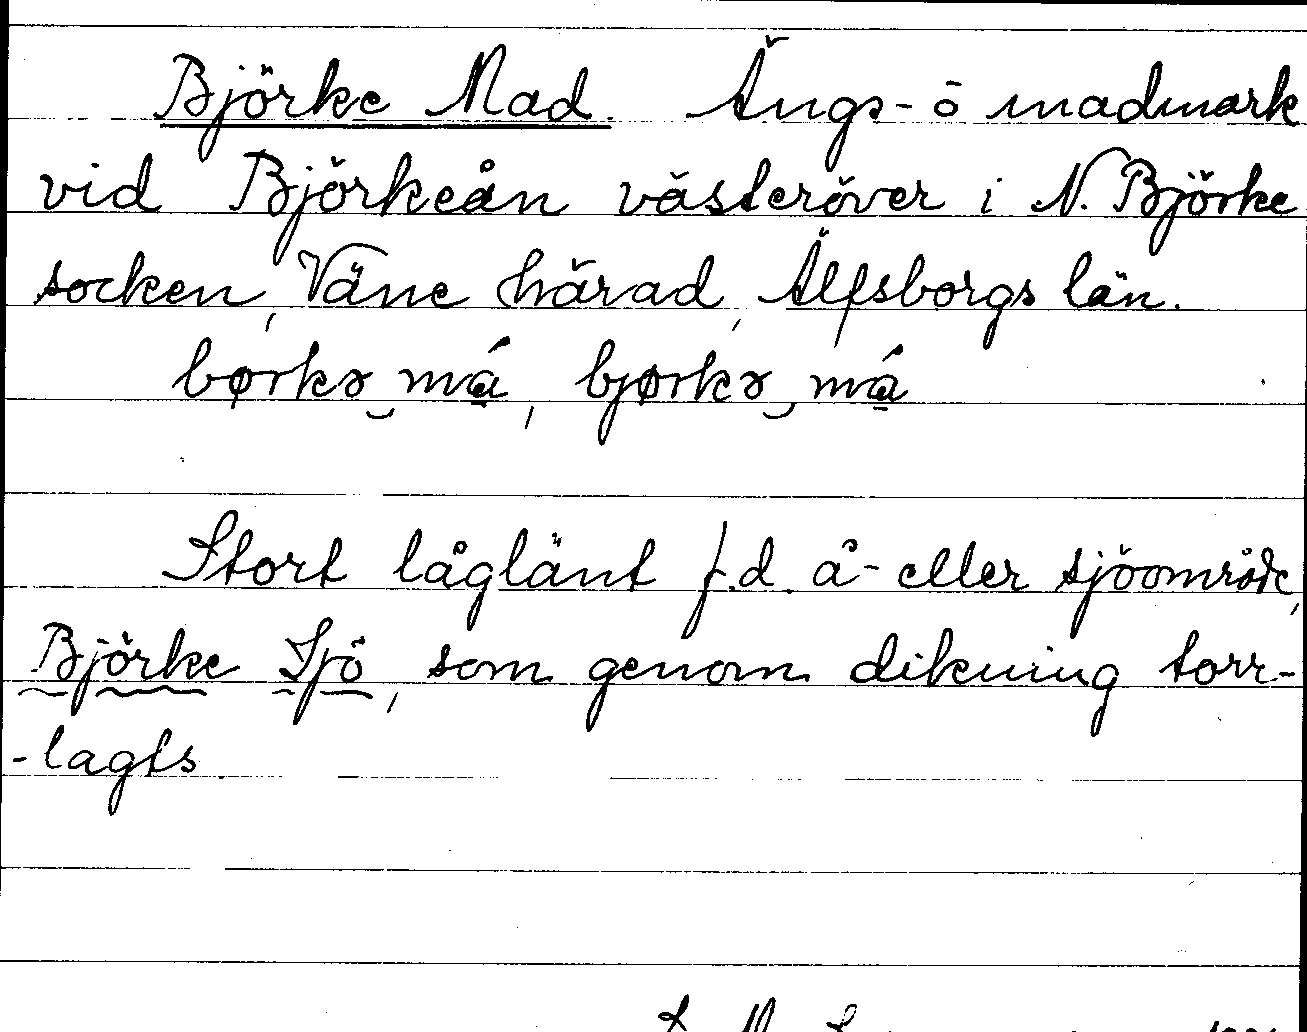 Björke Mad. Ängs- o madmark
vid Björkeån västeröver i N. Björke
socken, Väne härad, Älfsborgs län.
børkə‿má, bjørkə‿má
Stort låglänt f.d. å- eller sjöområde,
Björke Sjö, som genom dikning torr-
-lagts.